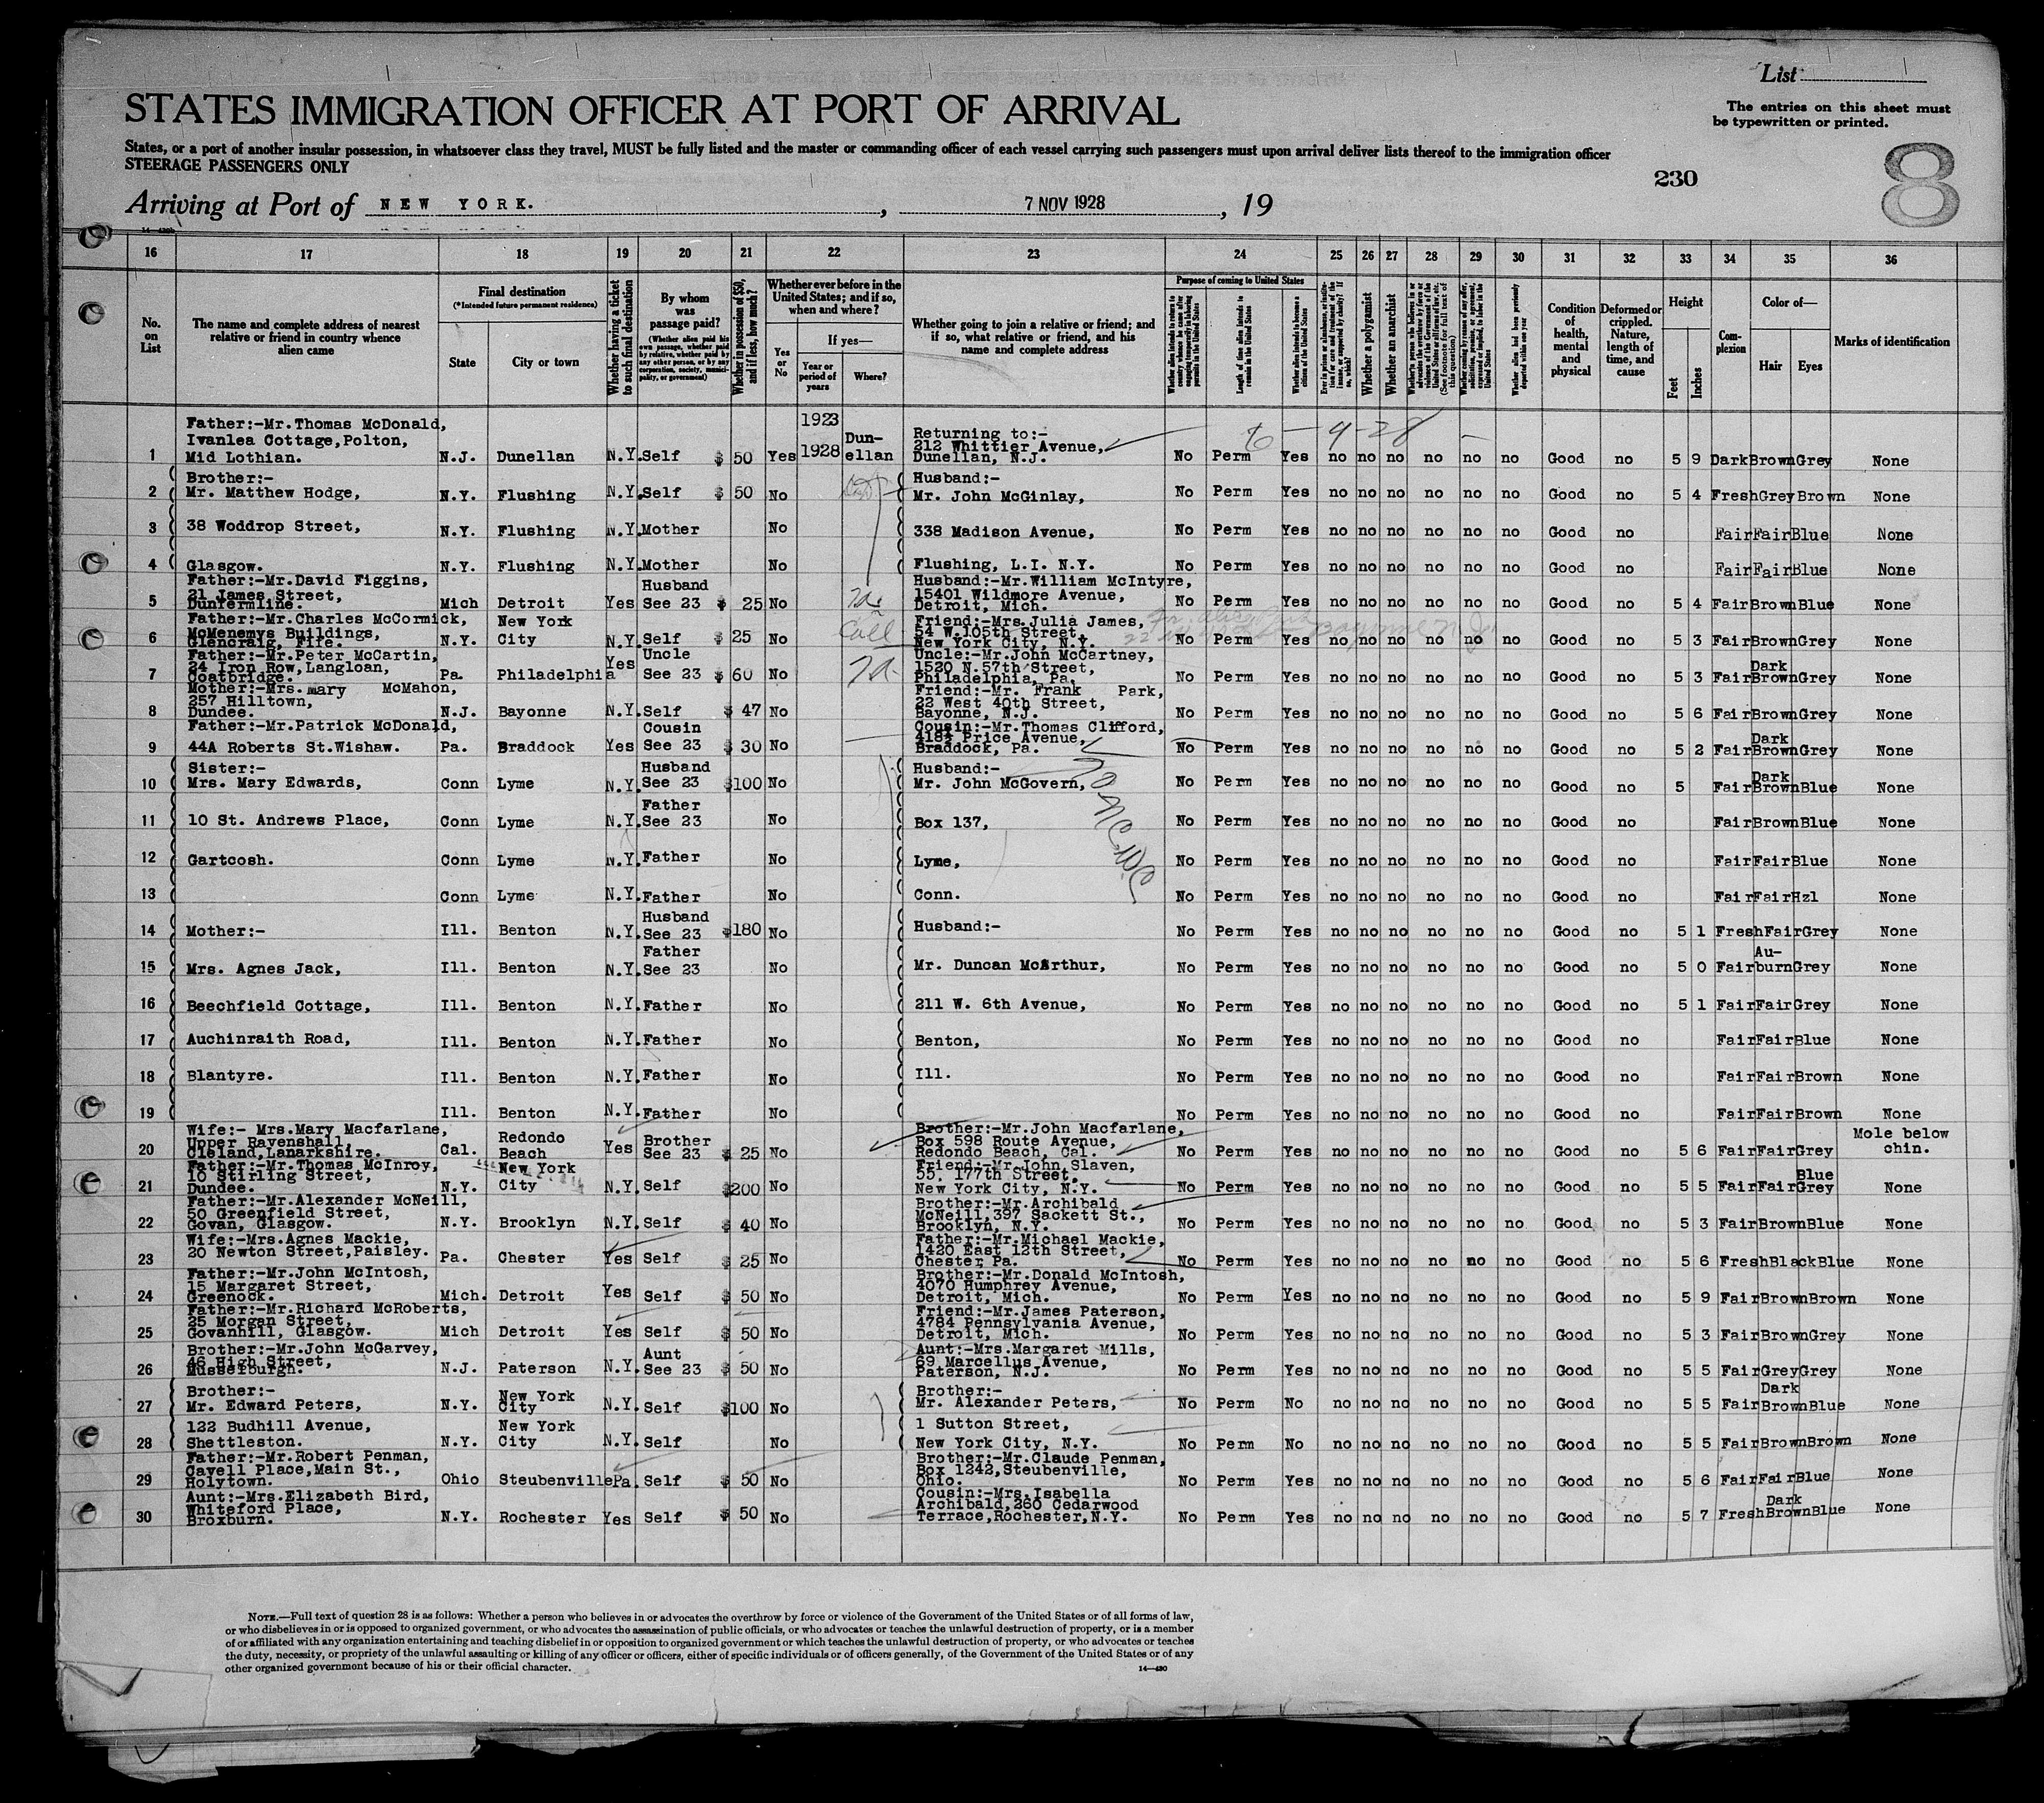 List
STATES IMMIGRATION OFFICER AT PORT OF ARRIVAL
The entries on this sheet must
be typewritten or printed.
States, or a port of another insular possession, in whatsoever class they travel, MUST be fully listed and the master or commanding officer of each vessel carrying such passengers must upon arrival deliver lists thereof to the immigration officer
STEERAGE PASSENGERS ONLY
230
8
Arriving at Port of NEW YORK. , 7 NOV 1928 , 19
16 17 18 19 20 21 22 23 24 25 26 27 28 29 30 31 32 33 34 35 36
No. on List
The name and complete address of nearest relative or friend in country whence alien came
Final destination
(*Intended future permanent residence)
State
City or town
Whether having a ticket to such final destination
By whom was passage paid?
(Whether alien paid his own passage, whether paid by relative, whether paid by any other person, or by any corporation, society, municipality, or government)
Whether in possession of $50, and if less, how much?
Whether ever before in the United States; and if so, when and where?
Yes or No
If yes—
Year or period of years
Where?
Whether going to join a relative or friend; and if so, what relative or friend, and his name and complete address
Purpose of coming to United States
Length of time alien intends to remain in the United States
Whether alien intends to become a citizen of the United States
Whether a polygamist
Whether an anarchist
Condition of health, mental and physical
Deformed or crippled. Nature, length of time, and cause
Height
Feet
Inches
Complexion
Color of—
Hair
Eyes
Marks of identification
1 Father:-Mr.Thomas McDonald, Ivanlea Cottage,Polton, Mid Lothian. N.J. Dunellan N.Y. Self $ 50 Yes 1923 1928 Dunellan Returning to:- 212 Whittier Avenue, Dunellan, N.J. No Perm Yes no no no no no no Good no 5 9 Dark Brown Grey None
6-9-28
2 Brother:- Mr. Matthew Hodge, N.Y. Flushing N.Y. Self $ 50 No Husband:- Mr. John McGinlay, No Perm Yes no no no no no no Good no 5 4 Fresh Grey Brown None
3 38 Woddrop Street, N.Y. Flushing N.Y. Mother No 338 Madison Avenue, No Perm Yes no no no no no no Good no Fair Fair Blue None
4 Glasgow. N.Y. Flushing N.Y. Mother No Flushing, L.I. N.Y. No Perm Yes no no no no no no Good no Fair Fair Blue None
5 Father:-Mr.David Figgins, 21 James Street, Dunfermline. Mich Detroit Yes Husband See 23 $ 25 No Husband:-Mr.William McIntyre, 15401 Wildmore Avenue, Detroit, Mich. No Perm Yes no no no no no no Good no 5 4 Fair Brown Blue None
6 Father:-Mr.Charles McCormick, McMenemys Buildings, Glencraig, Fife. N.Y. New York City N.Y. Self $ 25 No Call Friend:-Mrs.Julia James, 54 W.105th Street, New York City, N.Y. No Perm Yes no no no no no no Good no 5 3 Fair Brown Grey None
7 Father:-Mr.Peter McCartin, 24 Iron Row,Langloan, Coatbridge. Pa. Philadelphia Yes Uncle See 23 $ 60 No Uncle:-Mr.John McCartney, 1520 N.57th Street, Philadelphia, Pa. No Perm Yes no no no no no no Good no 5 3 Fair Dark Brown Grey None
8 Mother:-Mrs. mary McMahon, 257 Hilltown, Dundee. N.J. Bayonne N.Y. Self $ 47 No Friend:-Mr. Frank Park, 22 West 40th Street, Bayonne, N.J. No Perm Yes no no no no no no Good no 5 6 Fair Brown Grey None
9 Father:-Mr.Patrick McDonald, 44A Roberts St.Wishaw. Pa. Braddock Yes Cousin See 23 $ 30 No Cousin:-Mr.Thomas Clifford, 418½ Price Avenue, Braddock, Pa. No Perm Yes no no no no no no Good no 5 2 Fair Dark Brown Grey None
10 Sister:- Mrs. Mary Edwards, Conn Lyme N.Y. Husband See 23 $100 No Husband:- Mr. John McGovern, No Perm Yes no no no no no no Good no 5 Fair Dark Brown Blue None
11 10 St. Andrews Place, Conn Lyme N.Y. Father See 23 No Box 137, No Perm Yes no no no no no no Good no Fair Brown Blue None
12 Gartcosh. Conn Lyme N.Y. Father No Lyme, No Perm Yes no no no no no no Good no Fair Fair Blue None
13 Conn Lyme N.Y. Father No Conn. No Perm Yes no no no no no no Good no Fair Fair Hzl None
14 Mother:- Ill. Benton N.Y. Husband See 23 $180 No Husband:- No Perm Yes no no no no no no Good no 5 1 Fresh Fair Grey None
15 Mrs. Agnes Jack, Ill. Benton N.Y. Father See 23 No Mr. Duncan McArthur, No Perm Yes no no no no no no Good no 5 0 Fair Auburn Grey None
16 Beechfield Cottage, Ill. Benton N.Y. Father No 211 W. 6th Avenue, No Perm Yes no no no no no no Good no 5 1 Fair Fair Grey None
17 Auchinraith Road, Ill. Benton N.Y. Father No Benton, No Perm Yes no no no no no no Good no Fair Fair Blue None
18 Blantyre. Ill. Benton N.Y. Father No Ill. No Perm Yes no no no no no no Good no Fair Fair Brown None
19 Ill. Benton N.Y. Father No No Perm Yes no no no no no no Good no Fair Fair Brown None
20 Wife:- Mrs.Mary Macfarlane, Upper Ravenshall, Cleland,Lanarkshire. Cal. Redondo Beach Yes Brother See 23 $ 25 No Brother:-Mr.John Macfarlane, Box 598 Route Avenue, Redondo Beach, Cal. No Perm Yes no no no no no no Good no 5 6 Fair Fair Grey Mole below chin.
21 Father:-Mr.Thomas McInroy, 10 Stirling Street, Dundee. N.Y. New York City N.Y. Self $200 No Friend:-Mr.John Slaven, 55. 177th Street, New York City, N.Y. No Perm Yes no no no no no no Good no 5 5 Fair Fair Blue Grey None
22 Father:-Mr.Alexander McNeill, 50 Greenfield Street, Govan, Glasgow. N.Y. Brooklyn N.Y. Self $ 40 No Brother:-Mr.Archibald McNeill,397 Sackett St., Brooklyn, N.Y. No Perm Yes no no no no no no Good no 5 3 Fair Brown Blue None
23 Wife:-Mrs.Agnes Mackie, 20 Newton Street,Paisley. Pa. Chester Yes Self $ 25 No Father:-Mr.Michael Mackie, 1420 East 12th Street, Chester Pa. No Perm Yes no no no no no no Good no 5 6 Fresh Black Blue None
24 Father:-Mr.John McIntosh, 15 Margaret Street, Greenock. Mich. Detroit Yes Self $ 50 No Brother:-Mr.Donald McIntosh, 4070 Humphrey Avenue, Detroit, Mich. No Perm Yes no no no no no no Good no 5 9 Fair Brown Brown None
25 Father:-Mr.Richard McRoberts, 25 Morgan Street, Govanhill, Glasgow. Mich Detroit Yes Self $ 50 No Friend:-Mr.James Paterson, 4784 Pennsylvania Avenue, Detroit, Mich. No Perm Yes no no no no no no Good no 5 3 Fair Brown Grey None
26 Brother:-Mr.John McGarvey, 46 High Street, Musselburgh. N.J. Paterson N.Y. Aunt See 23 $ 50 No Aunt:-Mrs.Margaret Mills, 69 Marcellus Avenue, Paterson, N.J. No Perm Yes no no no no no no Good no 5 5 Fair Grey Grey None
27 Brother:- Mr. Edward Peters, N.Y. New York City N.Y. Self $100 No Brother:- Mr. Alexander Peters, No Perm No no no no no no no Good no 5 5 Fair Dark Brown Blue None
28 122 Budhill Avenue, Shettleston. N.Y. New York City N.Y. Self No 1 Sutton Street, New York City, N.Y. No Perm No no no no no no no Good no 5 5 Fair Brown Brown None
29 Father:-Mr.Robert Penman, Cavell Place,Main St., Holytown. Ohio Steubenville Pa. Self $ 50 No Brother:-Mr.Claude Penman, Box 1242,Steubenville, Ohio. No Perm Yes no no no no no no Good no 5 6 Fair Fair Blue None
30 Aunt:-Mrs.Elizabeth Bird, Whiteford Place, Broxburn. N.Y. Rochester Yes Self $ 50 No Cousin:-Mrs.Isabella Archibald,260 Cedarwood Terrace,Rochester,N.Y. No Perm Yes no no no no no no Good no 5 7 Fresh Dark Brown Blue None
NOTE.—Full text of question 28 is as follows: Whether a person who believes in or advocates the overthrow by force or violence of the Government of the United States or of all forms of law,
or who disbelieves in or is opposed to organized government, or who advocates the assassination of public officials, or who advocates or teaches the unlawful destruction of property, or is a member
of or affiliated with any organization entertaining and teaching disbelief in or opposition to organized government or which teaches the unlawful destruction of property, or who advocates or teaches
the duty, necessity, or propriety of the unlawful assaulting or killing of any officer or officers, either of specific individuals or of officers generally, of the Government of the United States or of any
other organized government because of his or their official character.
14—430